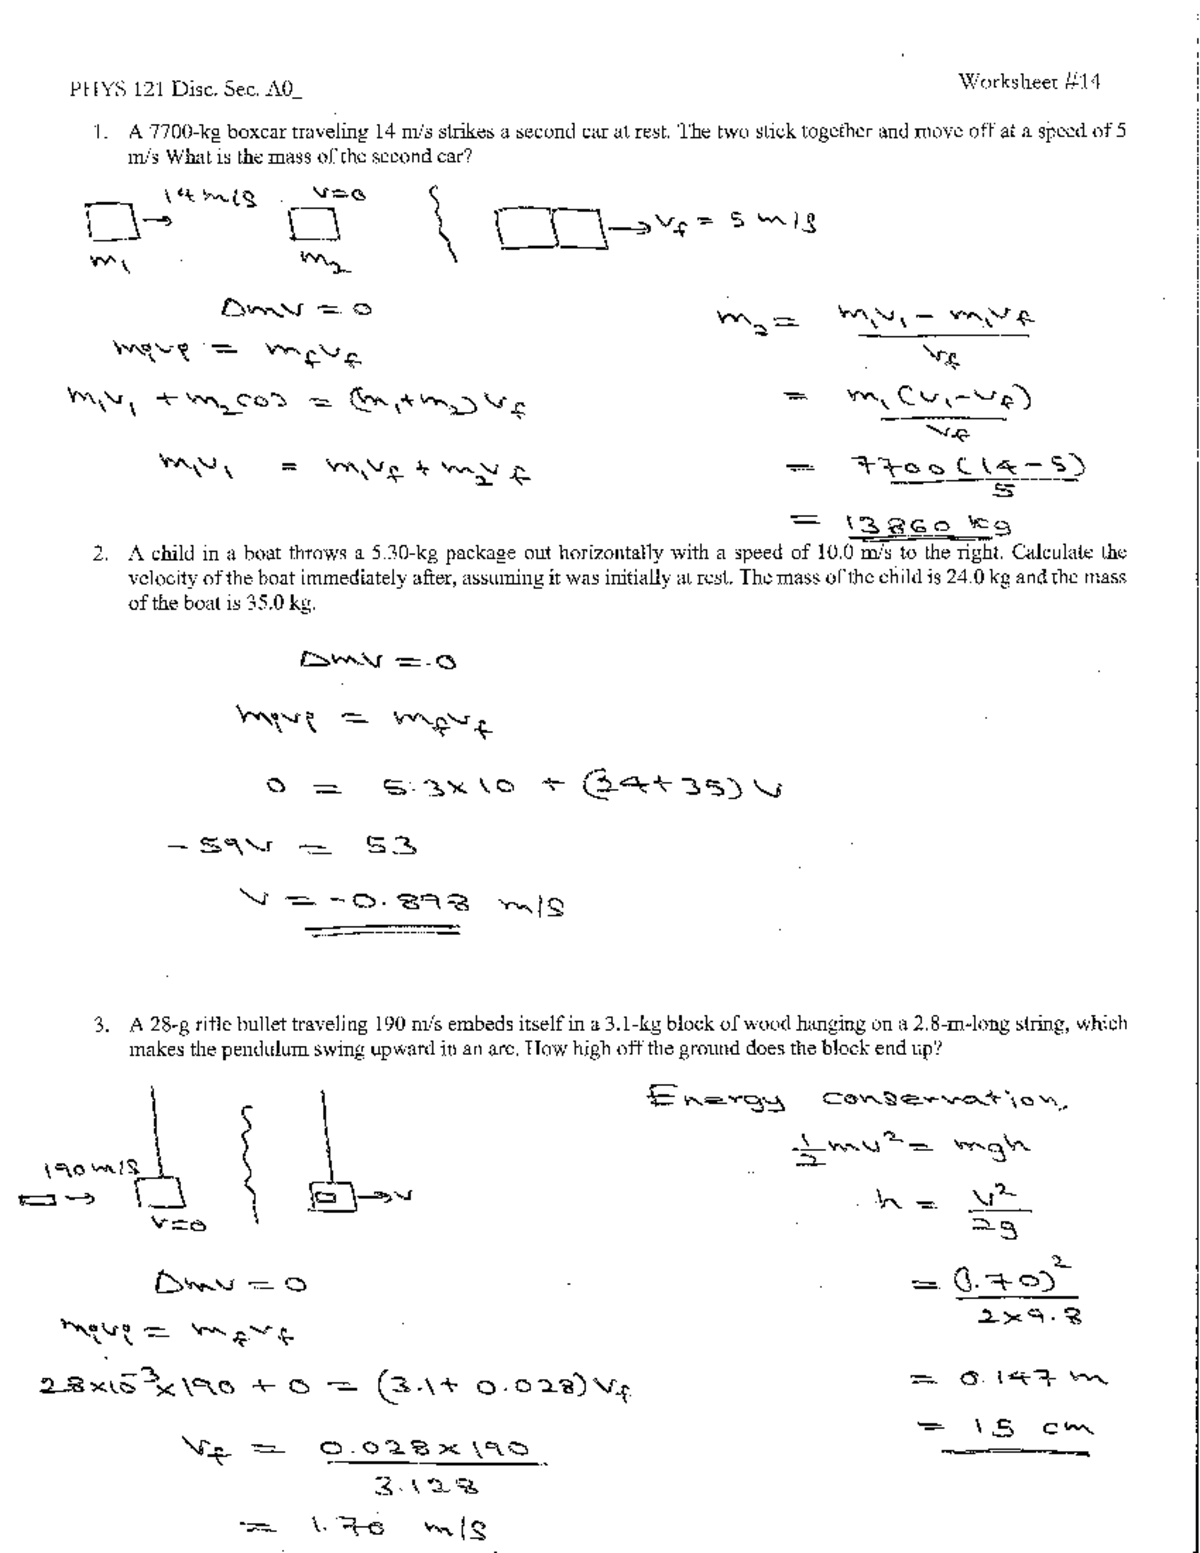 PHYS 121 Disc. Sec. A0_
Worksheet #14
1. A 7700-kg boxcar traveling 14 m/s strikes a second car at rest. The two stick together and move off at a speed of 5
m/s What is the mass of the second car?
14 m/s
v=0
→ v_f = 5 m/s
m₁
m₂
Δmv = 0
m_i v_i = m_f v_f
m₁v₁ + m₂(0) = (m₁+m₂) v_f
m₁v₁ = m₁v_f + m₂v_f
m₂ = m₁v₁ - m₁v_f
v_f
= m₁(v₁-v_f)
v_f
= 7700(14-5)
5
= 13860 kg
2. A child in a boat throws a 5.30-kg package out horizontally with a speed of 10.0 m/s to the right. Calculate the
velocity of the boat immediately after, assuming it was initially at rest. The mass of the child is 24.0 kg and the mass
of the boat is 35.0 kg.
Δmv = 0
m_i v_i = m_f v_f
0 = 5.3×10 + (24+35) v
-59v = 53
v = -0.898 m/s
3. A 28-g rifle bullet traveling 190 m/s embeds itself in a 3.1-kg block of wood hanging on a 2.8-m-long string, which
makes the pendulum swing upward in an arc. How high off the ground does the block end up?
190 m/s
v=0
→ v
Δmv = 0
m_i v_i = m_f v_f
28×10⁻³×190 + 0 = (3.1+ 0.028) v_f
v_f = 0.028×190
3.128
= 1.70 m/s
Energy conservation,
½mv² = mgh
h = v²
2g
= (1.70)²
2×9.8
= 0.147 m
= 15 cm